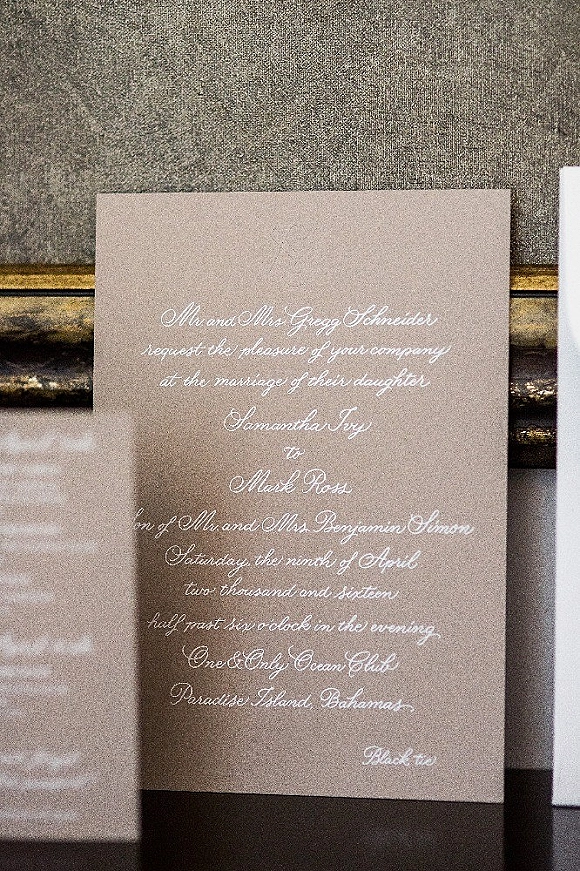 Mr. and Mrs. Gregg Schneider
request the pleasure of your company
at the marriage of their daughter
Samantha Ivy
to
Mark Ross
on of Mr. and Mrs. Benjamin Simon
Saturday, the ninth of April
two thousand and sixteen
half past six o'clock in the evening
One & Only Ocean Club
Paradise Island, Bahamas
Black tie